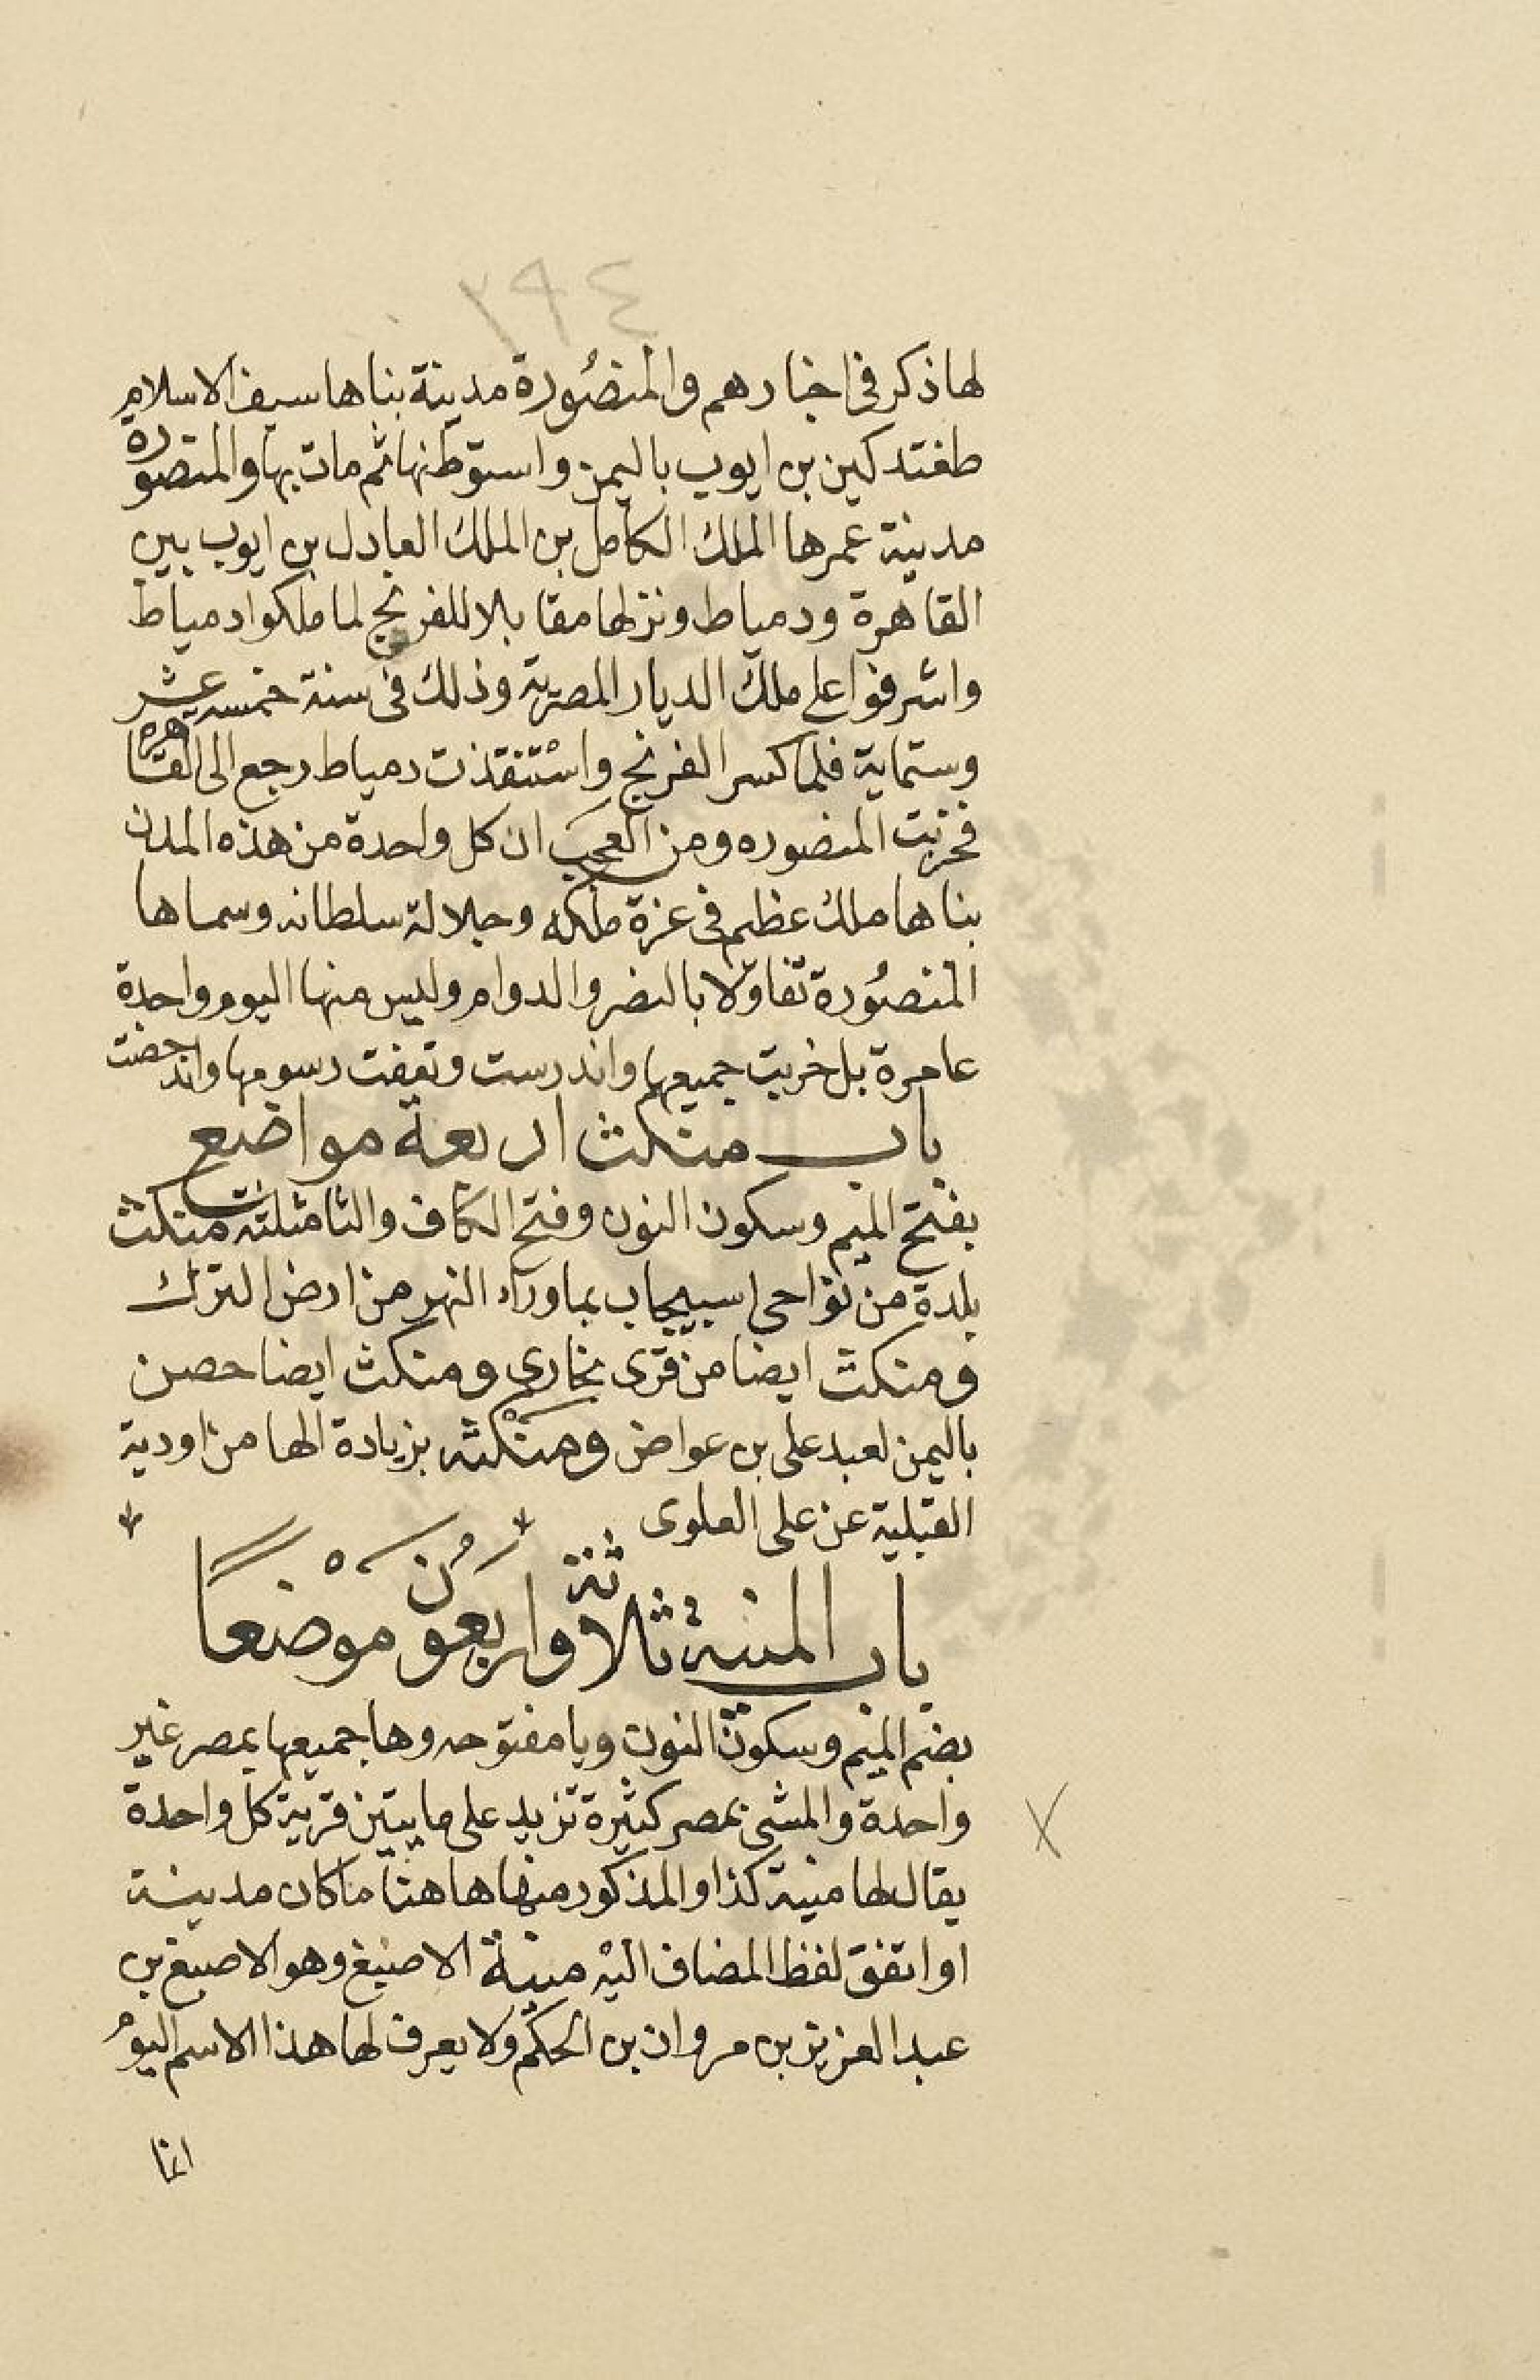 ٣٩٤
لها ذكر فى اخبارهم والمنصُورة مدينة بناها سيف الاسلام
طغتدكين بن ايوب باليمن واستوطنها ثم مات بها والمنصورة
مدينة عمرها الملك الكامل بن الملك العادل بن ايوب بين
القاهرة ودمياط ونزلها مقابلا للفرنج لما ملكوا دمياط
واشرفوا على ملك الديار المصرية وذلك فى سنة خمسه عشر
وستماية فلما كسر الفرنج واسْتنقذت دمياط رجع الى القاهره
فخربت المنصوره ومن العجب ان كل واحدة من هذه المدن
بناها ملك عظيم فى عزة ملكه وجلالة سلطانه وسماها
المنصُورة تفاولا بالنصر والدوام وليس منها اليوم واحدة
عامرة بل خربت جميعها واندرست وتعفت رسومها واندحضت
باب منكث اربعة مواضع
بفتح الميم وسكون النون وفتح الكاف والثا مثلثه منكث
بلدة من نواحى اسبيجاب بماوراء النهر من ارض الترك
ومنكث ايضا من قرى بخارى ومنكث ايضا حصن
باليمن لعبد على بن عواض ومنْكثه بزيادة الها من اودية
القبلية عن على العلوى
باب المنية ثلاثة واربعُونَ موْضعًا
بضم الميم وسكون النون ويا مفتوحه وها جميعها بمصر غير
واحدة والمشى بمصر كثيرة تزيد على مايتين قرية كل واحدة
يقال لها منية كذا والمذكور منها هاهنا ما كان مدينة
او اتفق لفظ المضاف اليْه منية الاصبغ وهو الاصبغ بن
عبد العزيز بن مروان بن الحكم ولا يعرف لها هذا الاسم اليومُ
انما